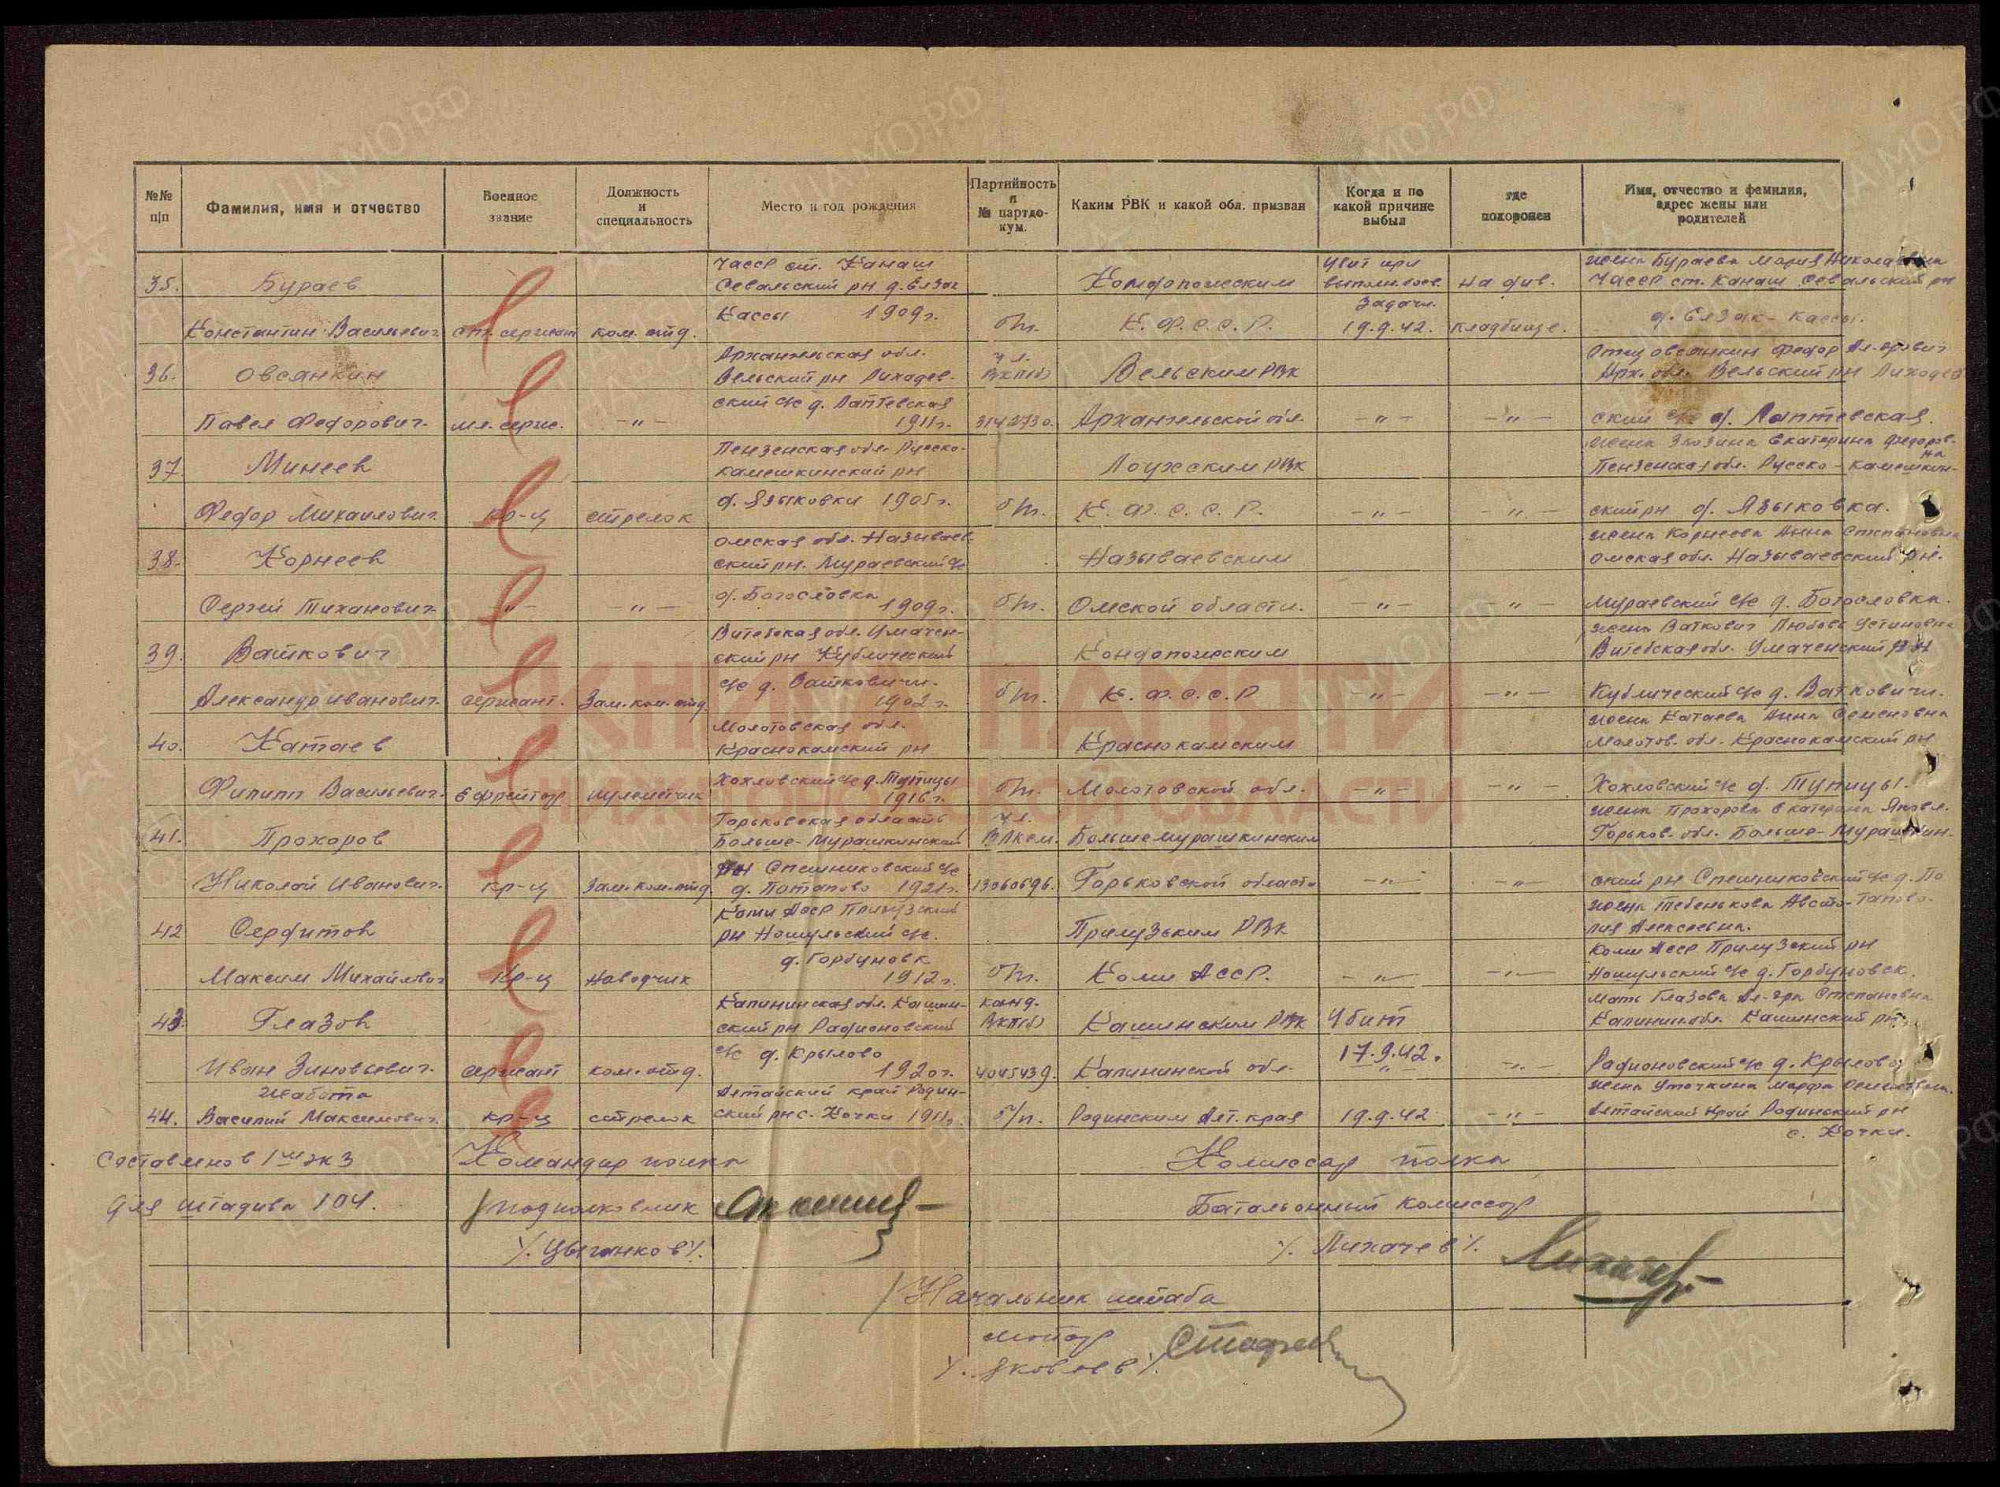 №№ п/п
Фамилия, имя и отчество
Военное звание
Должность и специальность
Место и год рождения
Партийность и № партдокум.
Каким РВК и какой обл. призван
Когда и по какой причине выбыл
где похоронен
Имя, отчество и фамилия, адрес жены или родителей
35. Бураев
Константин Васильевич
ст. сержант
ком. отд.
ЧАССР ст. Канаш
1909 г.
б/п.
К. Ф. С. С. Р.
Убит при
выполн. боев.
задачи
19.9.42.
на див.
кладбище.
жена Бураева Мария Николаевна
ЧАССР ст. Канаш
36. Овсянкин
Павел Федорович.
мл. серж.
— " —
Архангельская обл.
Вельский рн
ский с/с д. Лаптевская
1911 г.
чл.
ВКП(б)
3142730.
Вельским РВК
Архангельской обл.
— " —
— " —
ский с/с д. Лаптевская.
37 Минеев
Федор Михайлович
кр-ц
стрелок
Пензенская обл. Русско-
камешкинский рн
д. Языковки 1905 г.
б/п.
Лоухским РВК
К. Ф. С. С. Р.
— " —
— " —
Пензенская обл. Русско-камешкин-
ский рн д. Языковка.
38. Корнеев
Сергей Тиханович
— " —
— " —
Омская обл. Называев
ский рн. Мураевский с/с
д. Богословка
1909 г.
б/п.
Называевским
Омской области.
— " —
— " —
жена Корнеева Анна Степановна
Омская обл. Называевский рн.
Мураевский с/с д. Богословка.
39. Ваткович
Александр Иванович.
сержант.
Зам. ком. отд.
Витебская обл. Ушачен-
ский рн Кублический
с/с д. Ватковичи.
1902 г.
б/п.
Кондопожским
К. Ф. С. С. Р
— " —
— " —
жена Ваткович Любовь Устиновна
Витебская обл. Ушаченский рн
Кублический с/с д. Ватковичи.
40. Катаев
Филипп Васильевич.
ефрейтор
пулеметчик
Молотовская обл.
Краснокамский рн
Хохловский с/с д. Тупицы
1916 г.
б/п.
Краснокамским
Молотовской обл.
— " —
— " —
жена Катаева Анна Семеновна
Молотов. обл. Краснокамский рн
Хохловский с/с д. Тупицы.
41. Прохоров
Николай Иванович.
кр-ц
Зам. ком. отд.
Горьковская область
Больше-Мурашкинский
рн Спешниковский с/с
д. Потапово 1921 г.
чл.
ВЛКСМ.
13060696.
Больше Мурашкинским
Горьковской области
— " —
— " —
жена Прохорова Екатерина Яковл.
Горьков. обл. Больше-Мурашкин-
ский рн Спешниковский с/с д. По
тапово.
42 Сердитов
Максим Михайлович
кр-ц
наводчик
Коми АССР Прилузский
рн Ношульский с/с.
д. Горбуновк
1912 г.
б/п.
Прилузьким РВК
Коми АССР.
— " —
— " —
Коми АССР Прилузский рн
Ношульский с/с д. Горбуновск.
43. Глазов
Иван Зиновьевич.
сержант
ком. отд.
Калининская обл. Кашин-
ский рн Радионовский
с/с д. Крылово
1920 г.
канд.
ВКП(б)
4045439.
Кашинским РВК
Калининской обл.
Убит
17.9.42.
— " —
Мать Глазова Ал-дра Степановна
Калинин обл. Кашинский рн
Радионовский с/с д. Крылово.
44. Жабота
Василий Максимович.
кр-ц
стрелок
Алтайский край Родин-
ский рн с. Кочки 1911 г.
б/п.
Родинским Алт. края
19.9.42
— " —
Алтайский край Родинский рн
с. Кочки.
Составлен в 1м экз
для штадива 104.
Командир полка
подполковник
/. Цыганков /.
Комиссар полка
Батальонный комиссар
/. Лихачев /.
Начальник штаба
майор
/. Яковлев /.
КНИГА ПАМЯТИ
НИЖЕГОРОДСКОЙ ОБЛАСТИ
ПАМЯТЬ НАРОДА
ЦАМО.РФ